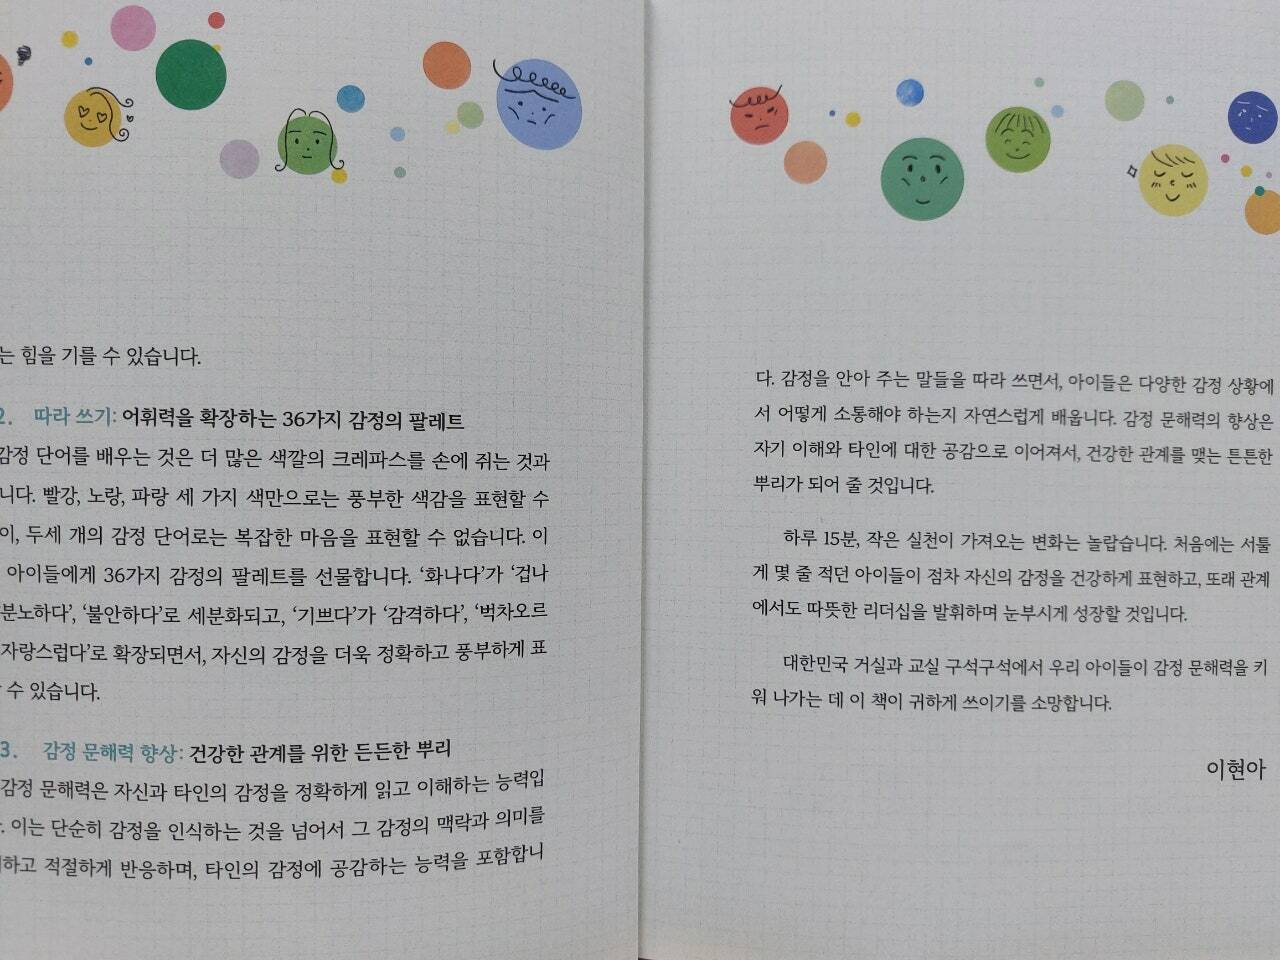 는 힘을 기를 수 있습니다.
2. 따라 쓰기: 어휘력을 확장하는 36가지 감정의 팔레트
감정 단어를 배우는 것은 더 많은 색깔의 크레파스를 손에 쥐는 것과
니다. 빨강, 노랑, 파랑 세 가지 색만으로는 풍부한 색감을 표현할 수
이, 두세 개의 감정 단어로는 복잡한 마음을 표현할 수 없습니다. 이
아이들에게 36가지 감정의 팔레트를 선물합니다. ‘화나다’가 ‘겁나
분노하다’, ‘불안하다’로 세분화되고, ‘기쁘다’가 ‘감격하다’, ‘벅차오르
자랑스럽다’로 확장되면서, 자신의 감정을 더욱 정확하고 풍부하게 표
수 있습니다.
3. 감정 문해력 향상: 건강한 관계를 위한 든든한 뿌리
감정 문해력은 자신과 타인의 감정을 정확하게 읽고 이해하는 능력입
. 이는 단순히 감정을 인식하는 것을 넘어서 그 감정의 맥락과 의미를
하고 적절하게 반응하며, 타인의 감정에 공감하는 능력을 포함합니
다. 감정을 안아 주는 말들을 따라 쓰면서, 아이들은 다양한 감정 상황에
서 어떻게 소통해야 하는지 자연스럽게 배웁니다. 감정 문해력의 향상은
자기 이해와 타인에 대한 공감으로 이어져서, 건강한 관계를 맺는 튼튼한
뿌리가 되어 줄 것입니다.
하루 15분, 작은 실천이 가져오는 변화는 놀랍습니다. 처음에는 서툴
게 몇 줄 적던 아이들이 점차 자신의 감정을 건강하게 표현하고, 또래 관계
에서도 따뜻한 리더십을 발휘하며 눈부시게 성장할 것입니다.
대한민국 거실과 교실 구석구석에서 우리 아이들이 감정 문해력을 키
워 나가는 데 이 책이 귀하게 쓰이기를 소망합니다.
이현아